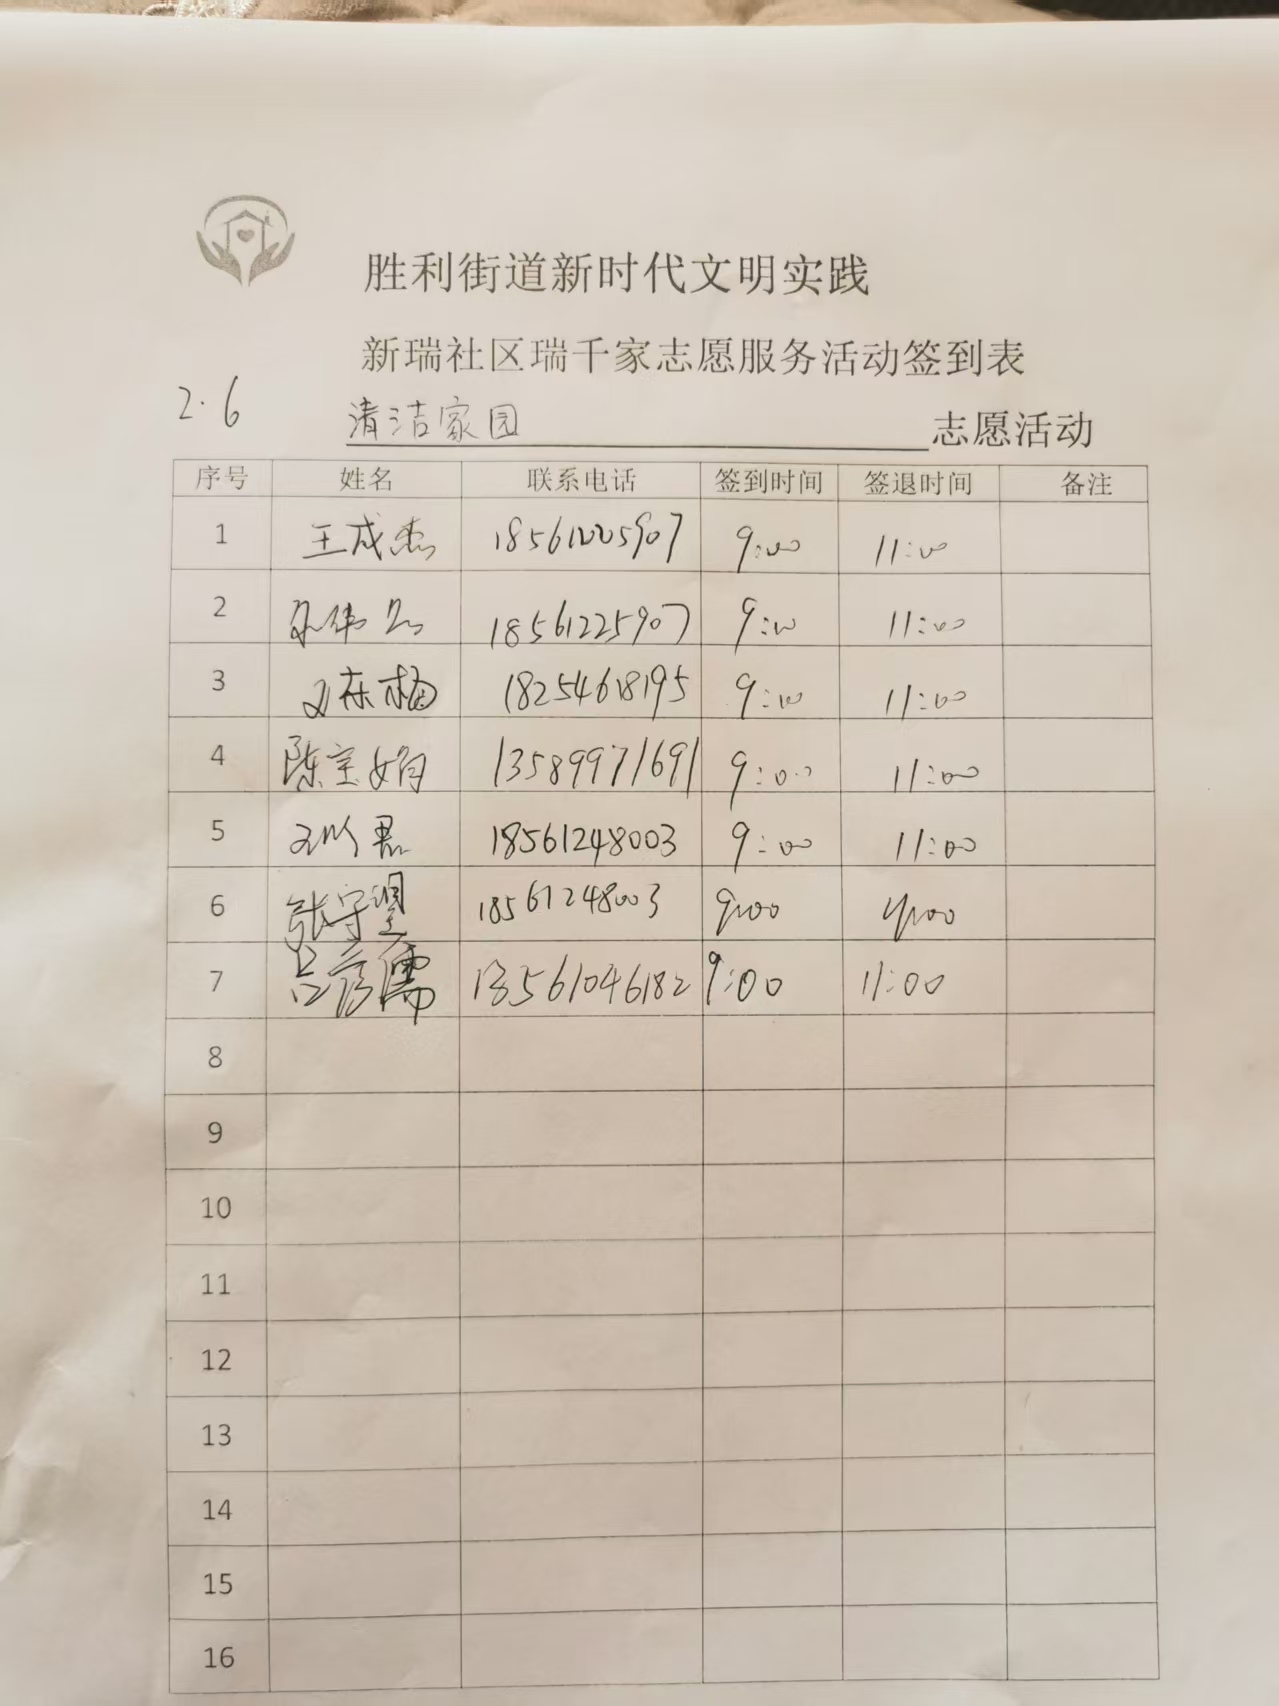 胜利街道新时代文明实践
新瑞社区瑞千家志愿服务活动签到表
2.6 清洁家园 志愿活动
序号 姓名 联系电话 签到时间 签退时间 备注
1 王成杰 18561005907 9:00 11:00
2 18561225907 9:00 11:00
3 18254618195 9:00 11:00
4 陈宝娟 13589971691 9:00 11:00
5 18561248003 9:00 11:00
6 张守 18561248003 9:00
7 吕彦儒 13561046182 9:00 11:00
8
9
10
11
12
13
14
15
16